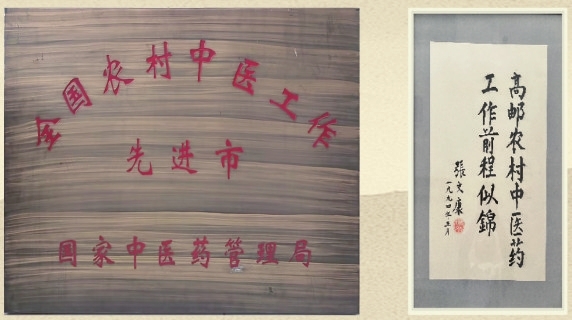 全国农村中医工作
先进市
国家中医药管理局
高邮农村中医药
工作前程似錦
張文康
一九九四年五月